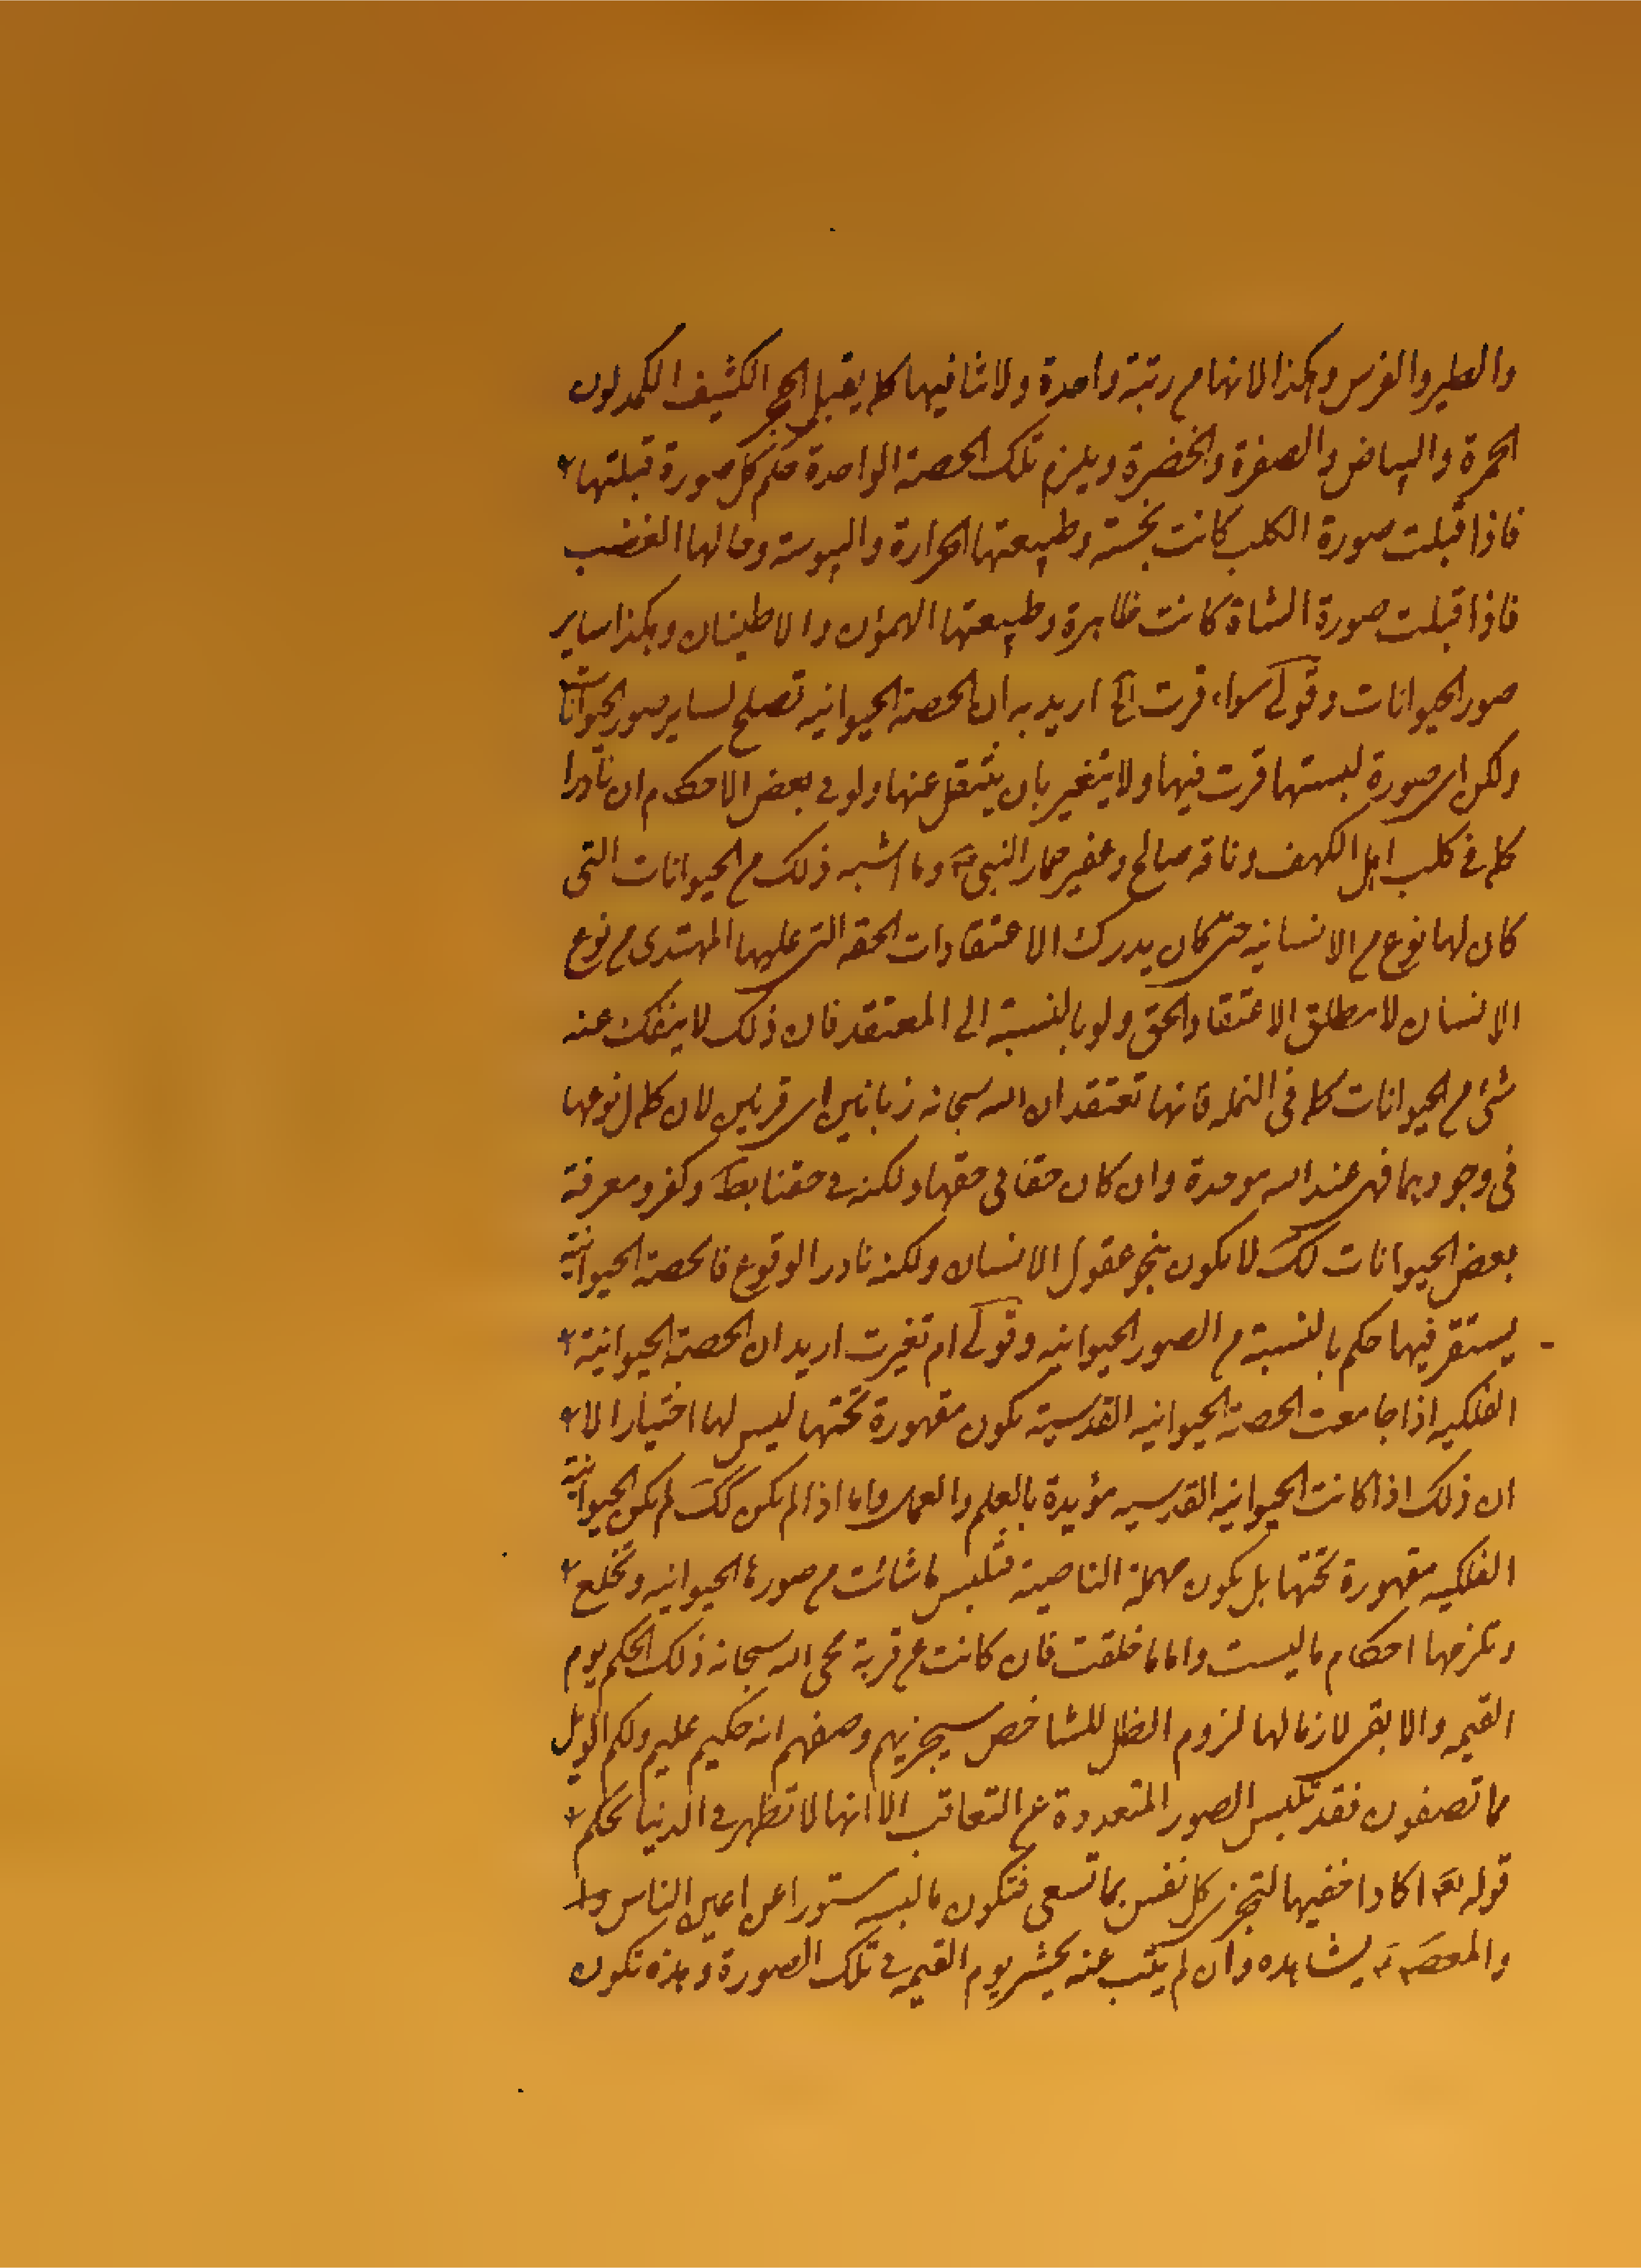 والطير والفرس وهكذا لانها من رتبة واحدة ولا تنافيها كما يقبل الجسم الكثيف الكمد لون
الحمرة والبياض والصفرة والخضرة ويلزم تلك الحصة الواحدة حكم كل صورة قبلتها
فاذا قبلت صورة الكلب كانت نجسة وطبيعتها الحرارة واليبوسة ومالها الغضب
فاذا قبلت صورة الشاة كانت طاهرة وطبيعتها الهوان والاطمينان وهكذا ساير
صور الحيوانات وقولي سواء قرت الخ اريد به ان الحصة الحيوانيه تصلح لساير صور الحيوانات
ولكن اى صورة لبستها قرت فيها ولا يتغير بان ينتقل عنها ولو في بعض الاحكام الا نادرا
كما في كلب اهل الكهف وناقه صالح وعفير حمار النبي ص وما اشبه ذلك من الحيوانات التى
كان لها نوع من الانسانيه حتى كان يدرك الاعتقادات الحقه التى عليها المهتدى من نوع
الانسان لا مطلق الاعتقاد الحق ولو بالنسبة الى المعتقد فان ذلك لا ينفك عنه
شئ من الحيوانات كما في النمله فانها تعتقد ان الله سبحانه زبانيين اى قرنين لان كمال نوعها
في وجودهما فهى عند الله موحدة وان كان حقا في حقها ولكنه في حقنا بط وكفر ومعرفة
بعض الحيوانات لك لا يكون بنحو عقول الانسان ولكنه نادر الوقوع فالحصة الحيوانية
يستقر فيها حكم بالنسبة من الصور الحيوانيه وقولي ام تغيرت اريد ان الحصة الحيوانية
الفلكيه اذا جامعت الحصة الحيوانيه القدسية يكون مقهورة تحتها ليس لها اختيار الا
ان ذلك اذا كانت الحيوانيه القدسيه مؤيدة بالعلم والعمل واما اذا لم يكن كك لم يكن الحيوانية
الفلكيه مقهورة تحتها بل يكون مهملة الناصية فتلبس ما شائت من صورها الحيوانيه وتخلع
وتلزمها احكام ما لبست واما ما خلقت فان كانت عن توبة محى الله سبحانه ذلك الحكم يوم
القيمه والا بقى لازما لها لزوم الظل للشاخص سيجزيهم وصفهم انه حكيم عليم ولكم الويل
مما تصفون فقد تلبس الصور المتعددة على التعاقب الا انها لا تظهر في الدنيا لحكم
قوله تع اكاد اخفيها لتجزى كل نفس بما تسعى فتكون ما لبسه مستورا عن اعين الناس
والمعصوم ع يشاهده وان لم يتب عنه يحشر يوم القيمه في تلك الصورة وهذه تكون